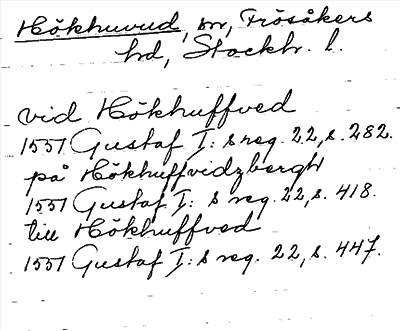 Hökhuvud, sn, Frösåkers
hd, Stockh. l.
vid Hökhuffved
1551 Gustaf I:s reg. 22, s. 282.
på Hökhuffvidzbergh
1551 Gustaf I:s reg. 22, s. 418.
till Hökhuffved
1551 Gustaf I:s reg. 22, s. 447.